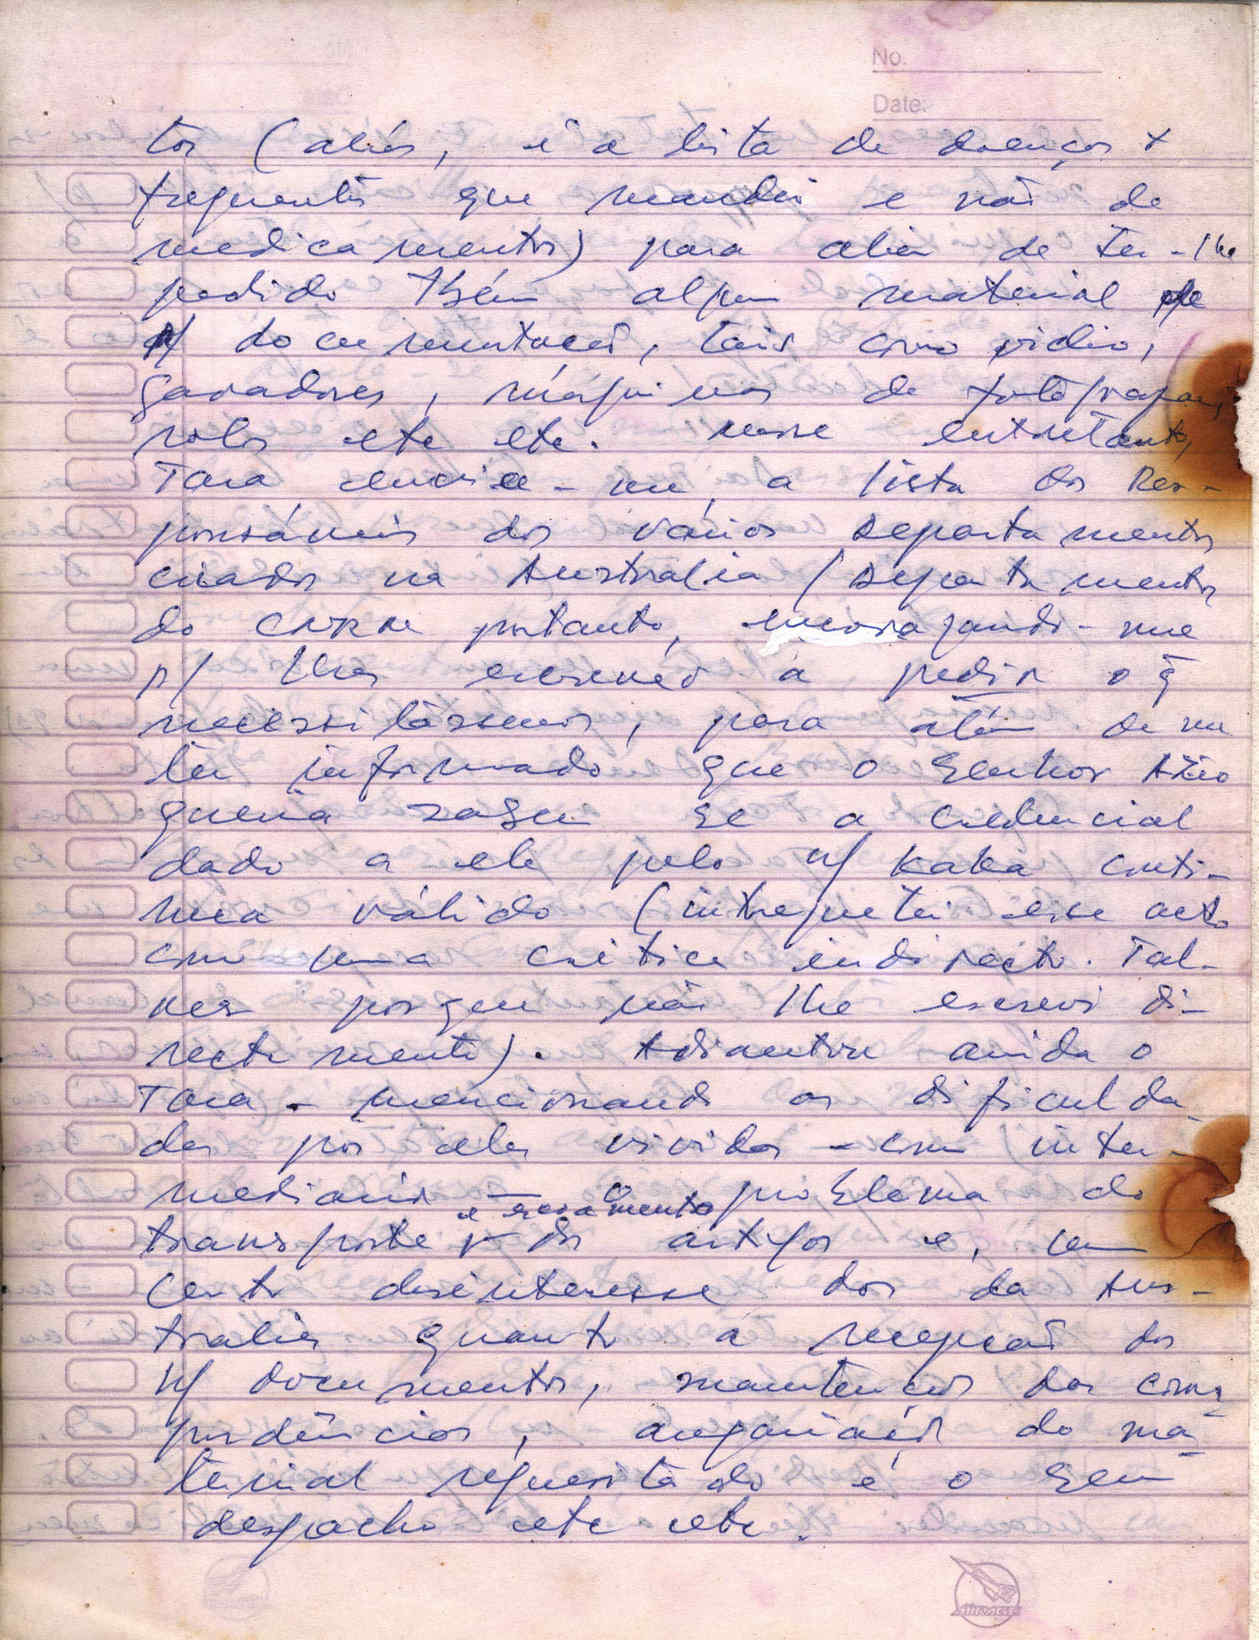 No.
Date:
tos (aliás, é a lista de doenças +
frequentes que mandei e não de
medicamentos) para além de ter-lhe
pedido tbém algum material
p/ documentação, tais como vídio,
gravadores, máquinas de fotografar,
rolos etc etc. nesse entretanto,
Tara enviou-me a lista dos Res-
ponsáveis dos vários Departamentos
criados na Austrália (Departamentos
do CNRM portanto, encorajando-me
p/ lhes escrever a pedir o q̃
necessitássemos, para além de me
ter informado que o Senhor
queria saber se a credencial
dado a ele pelo n/ Kaka conti-
nua válido (interpretei esse acto
como uma crítica indirecta. Tal-
vez porque não lhe escrevi di-
rectamente). Adiantou ainda o
Tara - mencionando as dificulda-
des por eles vividos - com inter-
mediários - o problema do
transporte e dos artigos e, um
certo desinteresse dos da Aus-
trália quanto à recepção dos
n/ documentos, manutenção das corres-
pondências, angariação do ma-
terial requisitado e o seu
despacho etc etc.